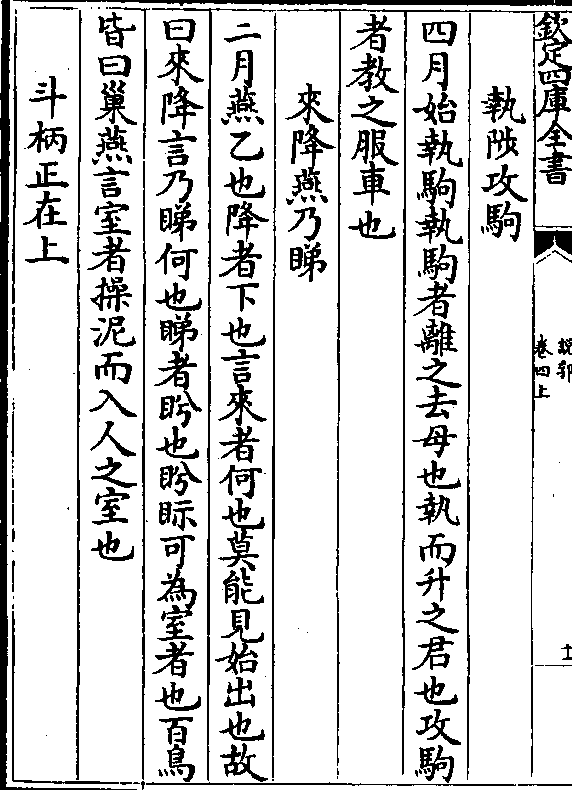 欽定四庫全書
說郛
卷四上
十
執陟攻駒
四月始執駒執駒者離之去母也執而升之君也攻駒
者教之服車也
來降燕乃睇
二月燕乙也降者下也言來者何也莫能見始出也故
曰來降言乃睇何也睇者眄也眄眎可為室者也百鳥
皆曰巢燕言室者操泥而入人之室也
斗柄正在上